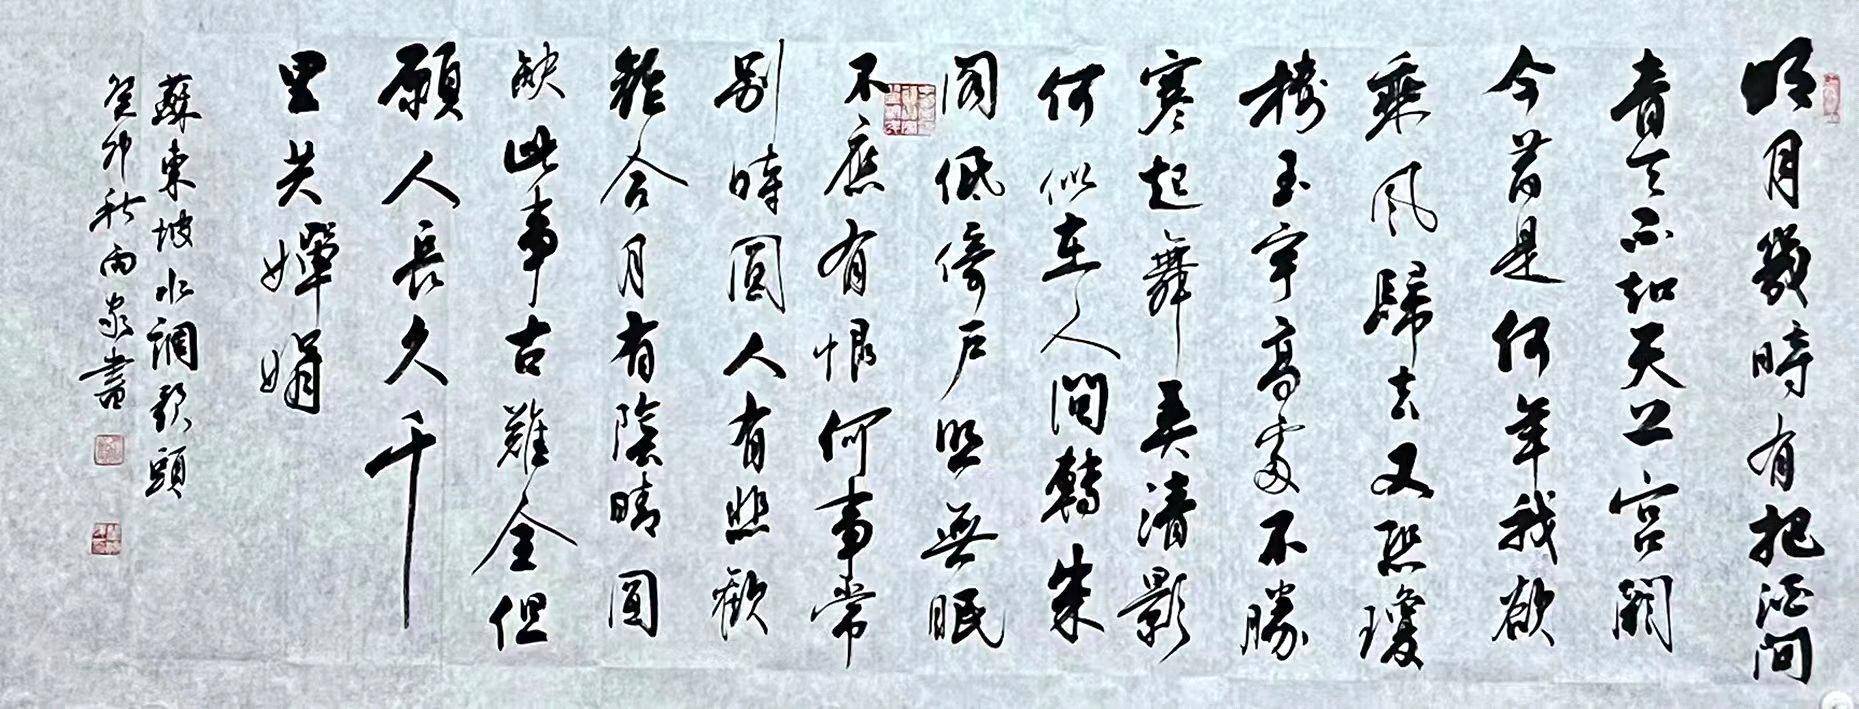 明月幾時有把酒問
青天不知天上宮闕
今昔是何年我欲
乘風歸去又恐瓊
樓玉宇高處不勝
寒起舞弄清影
何似在人間轉朱
閣低倚戶照無眠
不應有恨何事常
別時圓人有悲歡
離合月有陰晴圓
缺此事古難全但
願人長久千
里共嬋娟
蘇東坡水調歌頭
癸卯秋書